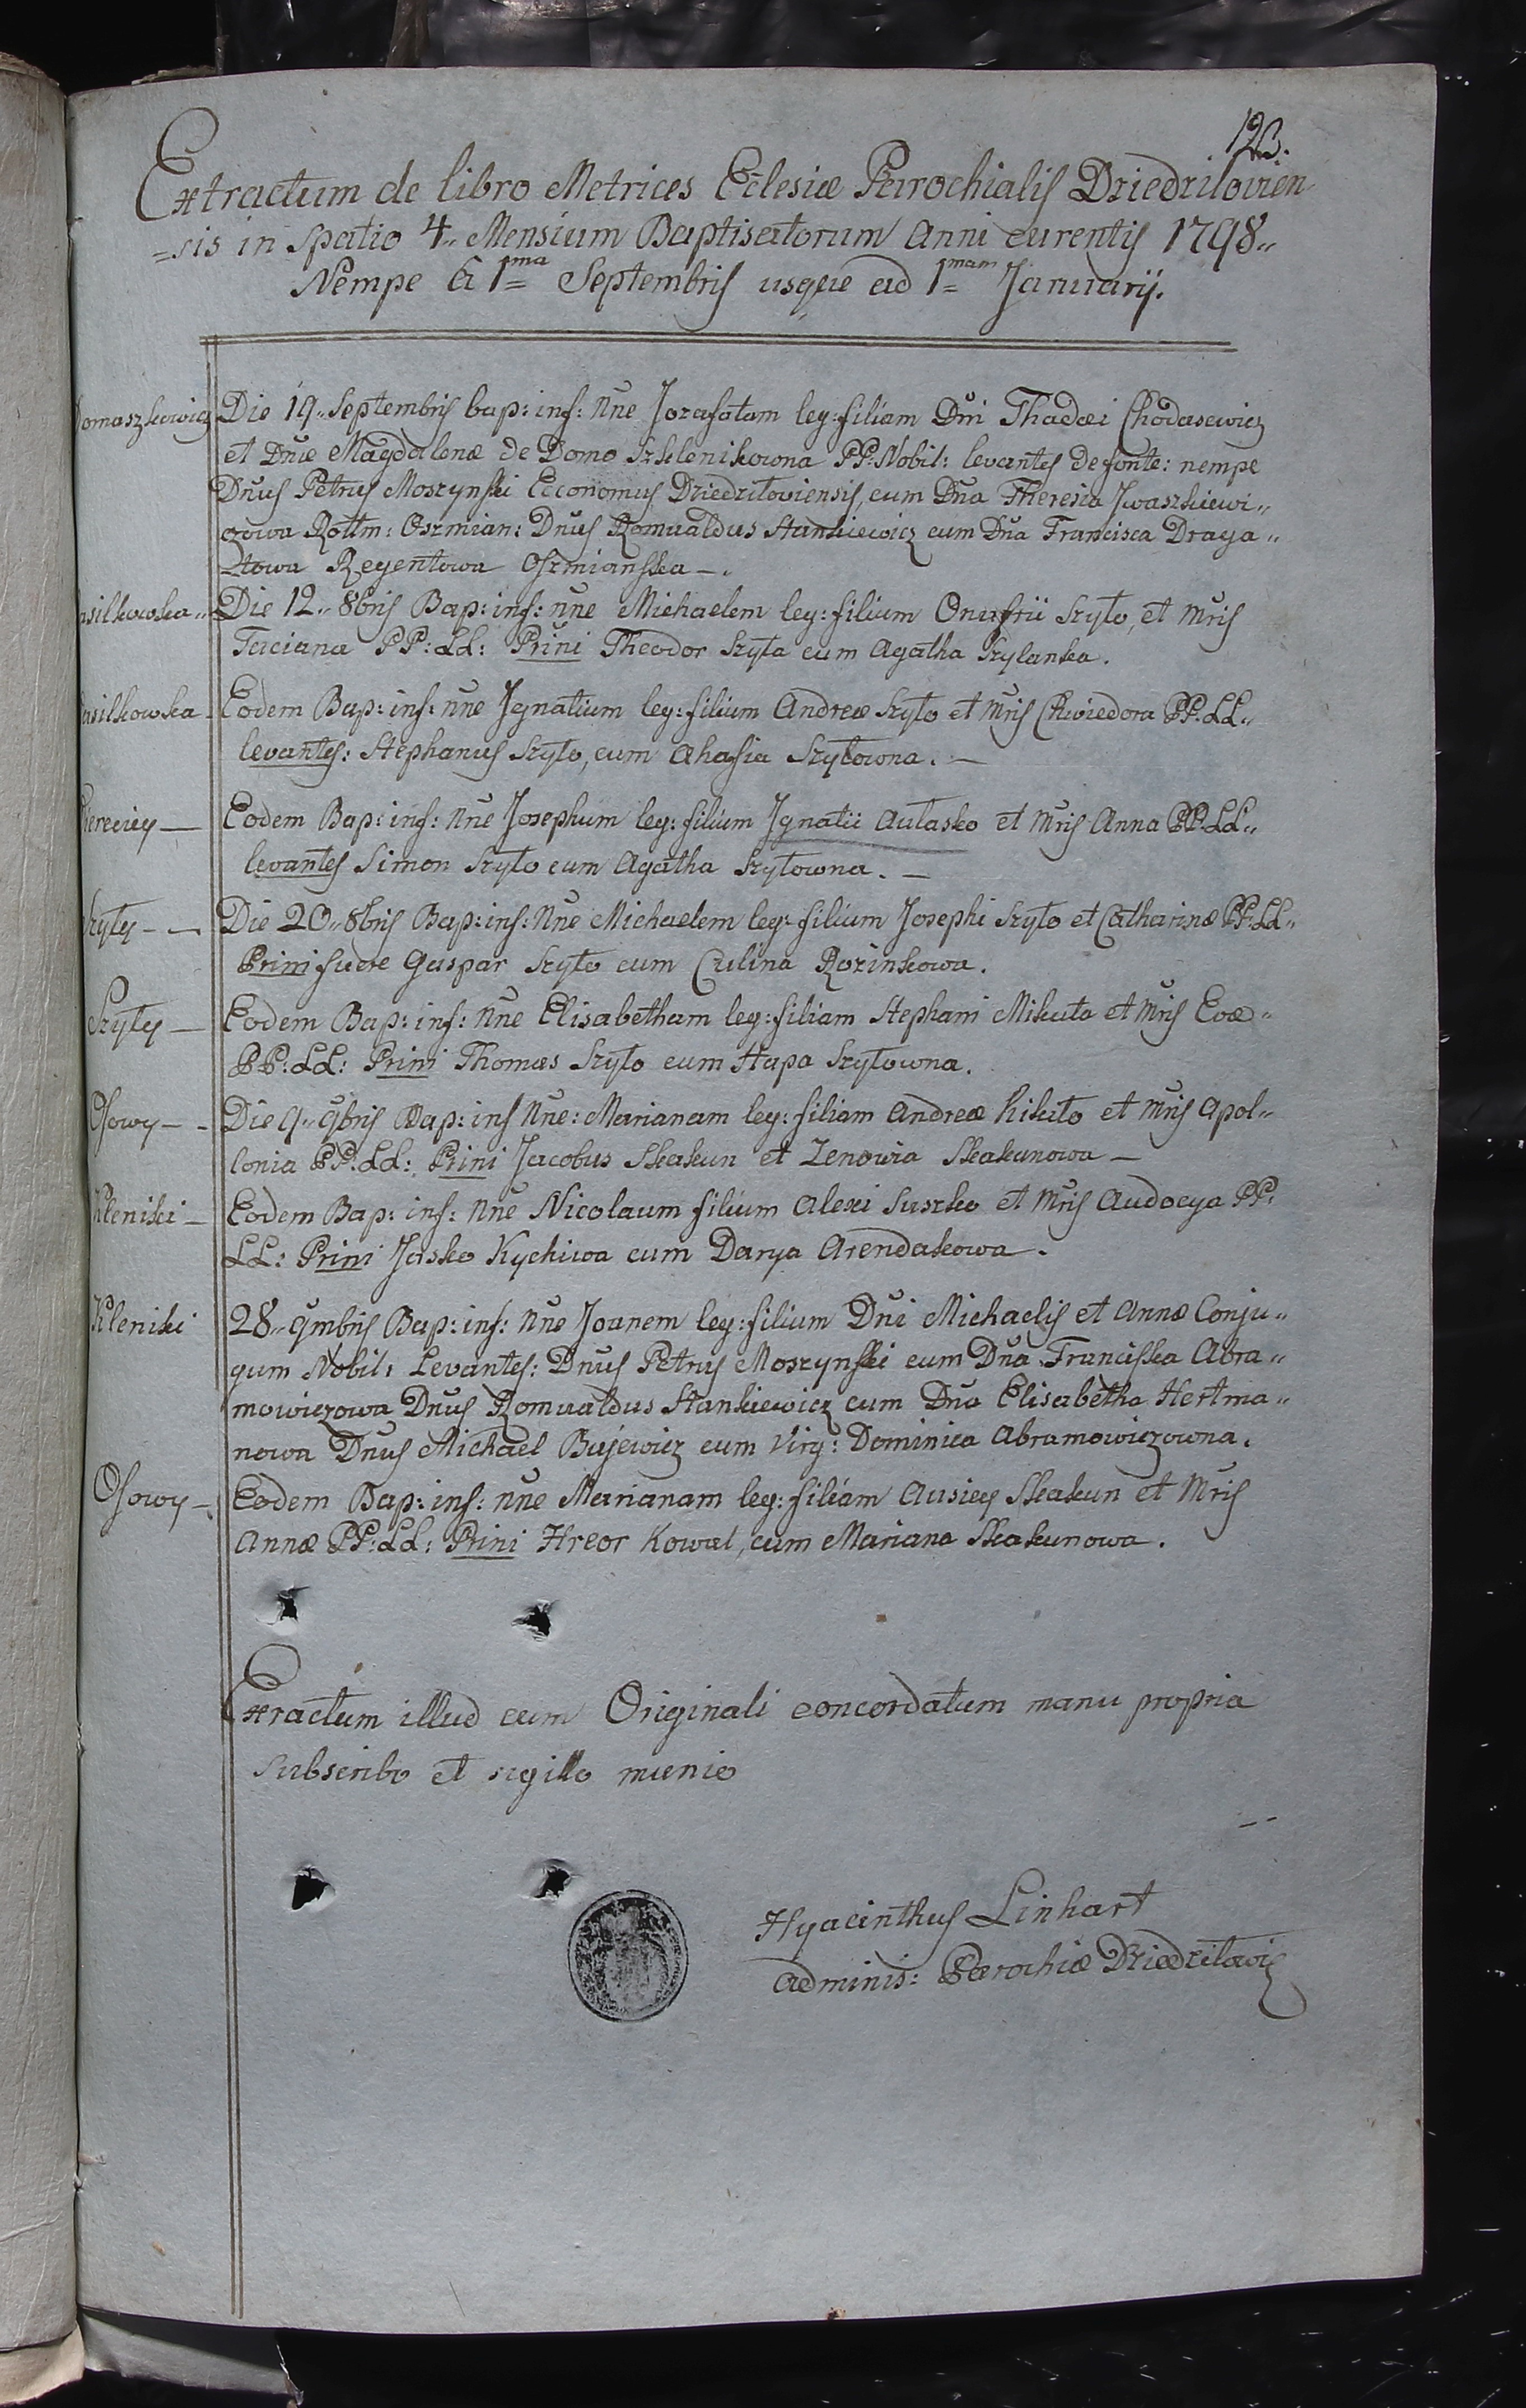 123.
Extractum de libro Metrices Eclesiæ Parochialis Dziedziłovien-
=sis in Spatio 4„ Mensium Baptisatorum Anni curentis 1798„
Nempe a 1ma Septembris usque ad 1mam Januarij.
Domaszkowicz Die 19„ Septembris bap: inf: Nn̄e Jozafatam leg: filiam Dn̄i Thadæi Chodasewicz
et Dn̄æ Magdalenæ de Domo Szklenikowna PP: Nobil: levantes de fonte: nempe
Dn̄us Petrus Moszynski Economus Dziedziłoviensis, cum Dn̄a Theresia Jwaszkiewi„
czowa Rottm: Oszmian: Dn̄us Romualdus Stankiewicz cum Dn̄a Francisca Draga„
towa Regentowa Oszmianska —.
asilkowska„ Die 12„ 8bris Bap: inf: nn̄e Michaelem leg: filium Onufrii Szyło, et Mr̄is
Taciana PP: LL: Prīni Theodor Szyła cum Agatha Szylanka.
asilkowska — Eodem Bap: inf: nn̄e Jgnatium leg: filium Andreæ Szyło et Mr̄is Chwiedora PP. LL„
levantes: Stephanus Szyło, cum Ahafia Szyłowna. —
Eodem Bap: inf: Nn̄e Josephum leg: filium Jgnatii Aułasko et Mr̄is Anna PP. LL„
levantes Simon Szyło cum Agatha Szyłowna. —
Szyły - — Die 20„ 8bris Bap: inf: Nn̄e Michaelem leg: filium Josephi Szyło et Catharinæ PP: LL„
Prīni fuere Gaspar Szyło cum Culina Rozinkowa.
Szyły — Eodem Bap: inf: Nn̄e Elisabetham leg: filiam Stephani Mikuła et Mr̄is Evæ„
PP: LL: Prīni Thomas Szyło cum Hapa Szyłowna.
Osowy — - Die 9„ 9bris Bap: inf Nn̄e: Marianam leg: filiam Andreæ Kikiło et Mr̄is Apol„
lonia PP: LL: Prīni Jacobus Skakun et Zenowia Skakunowa —
Kleniki — Eodem Bap: inf: Nn̄e Nicolaum filium Alexi Suszko et Mr̄is Audocya PP:
LL: Prīni Jasko Kychiwa cum Darya Arendakowa.
Kleniki 28„ 9mbris Bap: inf: Nn̄e Joanem leg: filium Dn̄i Michaelis et Annæ Conju„
gum Nobil: Levantes: Dn̄us Petrus Moszynski cum Dn̄a Franciska Abra„
mowiczowa Dn̄us Romualdus Stankiewicz cum Dn̄a Elisabetha Hertma„
nowa Dn̄us Michael Bujewicz cum Virg: Dominica Abramowiczowna.
Osowy — Eodem Bap: inf: nn̄e Marianam leg: filiam Ausiey Skakun et Mr̄is
Annæ PP: LL: Prīni Hreor Kowal, cum Mariana Skakunowa.
Exractum illud cum Originali concordatum manu propria
Subscribo et sigillo munio
Hyacinthus Linhart
Adminis: Parochiæ Dziedziłovis